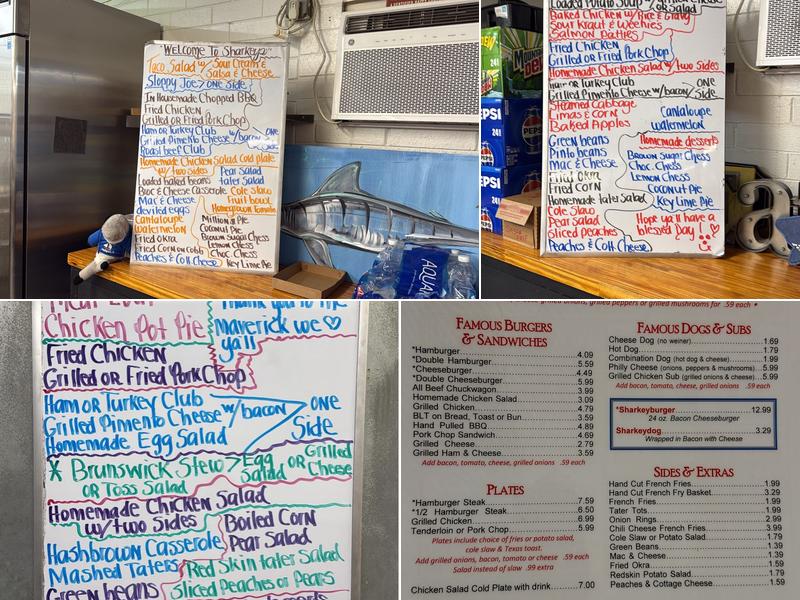 "Welcome To Sharkeyz"
Taco Salad w/ Sour Cream & Salsa & Cheese
Sloppy Joe > one Side
In Housemade Chopped BBQ
Fried Chicken
Grilled or Fried Pork Chop
Ham or Turkey Club
Grilled Pimento Cheese w/bacon
one Side
Roast beef Club
Homemade Chicken Salad Cold plate w/ two Sides
Pear Salad
Loaded baked beans
tater Salad
Broc & Cheese Casserole
Cole Slaw
Mac & Cheese
Fruit bowl
deviled eggs
Homegrown Tomatoes
Cantaloupe
Million $ Pie
watermelon
Coconut Pie
Fried Okra
Brown Sugar Chess
Fried Corn on Cobb
Lemon Chess
Choc. Chess
Peaches & Cott Cheese
Key Lime Pie
AQUA
Loaded Potato Soup
Grilled Cheese
or Salad
Baked Chicken w/ Rice & Gravy
Sour Kraut & Weenies
Salmon Patties
Fried Chicken
Grilled or Fried Pork Chop
Homemade Chicken Salad w/ two Sides
Ham or Turkey Club
Grilled Pimento Cheese w/bacon
one Side
Steamed Cabbage
Limas & Corn
Baked Apples
Cantaloupe
watermelon
Green beans
Pinto beans
Mac & Cheese
Fried Okra
Fried Corn
Homemade tater Salad
Cole Slaw
Pear Salad
Sliced peaches
Peaches & Cott Cheese
Homemade desserts
Brown Sugar Chess
Choc. Chess
Lemon Chess
Coconut Pie
Key Lime Pie
Hope ya'll have a blessed Day!
Mountain Dew
PEPSI
24
PEPSI
24
a
Meat Loaf
Chicken Pot Pie
Thank you to the
Maverick we ♡
ya'll
Fried Chicken
Grilled or Fried Pork Chop
Ham or Turkey Club
Grilled Pimento Cheese w/bacon
Homemade Egg Salad
one Side
* Brunswick Stew > Egg Salad or Grilled Cheese
or Toss Salad
Homemade Chicken Salad
w/two Sides
Boiled Corn
Pear Salad
Hashbrown Casserole
Mashed Taters
Red Skin tater Salad
Sliced Peaches or Pears
Green beans
grilled onions, grilled peppers or grilled mushrooms for .59 each •
FAMOUS BURGERS
& SANDWICHES
*Hamburger 4.09
*Double Hamburger 5.59
*Cheeseburger 4.49
*Double Cheeseburger 5.99
All Beef Chuckwagon 3.99
Homemade Chicken Salad 3.09
Grilled Chicken 4.79
BLT on Bread, Toast or Bun 3.59
Hand Pulled BBQ 4.89
Pork Chop Sandwich 4.69
Grilled Cheese 2.79
Grilled Ham & Cheese 3.59
Add bacon, tomato, cheese, grilled onions .59 each
PLATES
*Hamburger Steak 7.59
*1/2 Hamburger Steak 6.50
Grilled Chicken 6.99
Tenderloin or Pork Chop 5.99
Plates include choice of fries or potato salad,
cole slaw & Texas toast.
Add grilled onions, bacon, tomato or cheese .59 each
Salad instead of slaw .99 extra
Chicken Salad Cold Plate with drink 7.00
FAMOUS DOGS & SUBS
Cheese Dog (no weiner) 1.69
Hot Dog 1.79
Combination Dog (hot dog & cheese) 1.99
Philly Cheese (onions, peppers & mushrooms) 5.99
Grilled Chicken Sub (grilled onions & cheese) 5.99
Add bacon, tomato, cheese, grilled onions .59 each
*Sharkeyburger 12.99
24 oz. Bacon Cheeseburger
Sharkeydog 3.29
Wrapped in Bacon with Cheese
SIDES & EXTRAS
Hand Cut French Fries 1.99
Hand Cut French Fry Basket 3.29
French Fries 1.99
Tater Tots 1.99
Onion Rings 2.99
Chili Cheese French Fries 3.99
Cole Slaw or Potato Salad 1.79
Green Beans 1.39
Mac & Cheese 1.39
Fried Okra 1.59
Redskin Potato Salad 1.79
Peaches & Cottage Cheese 1.59